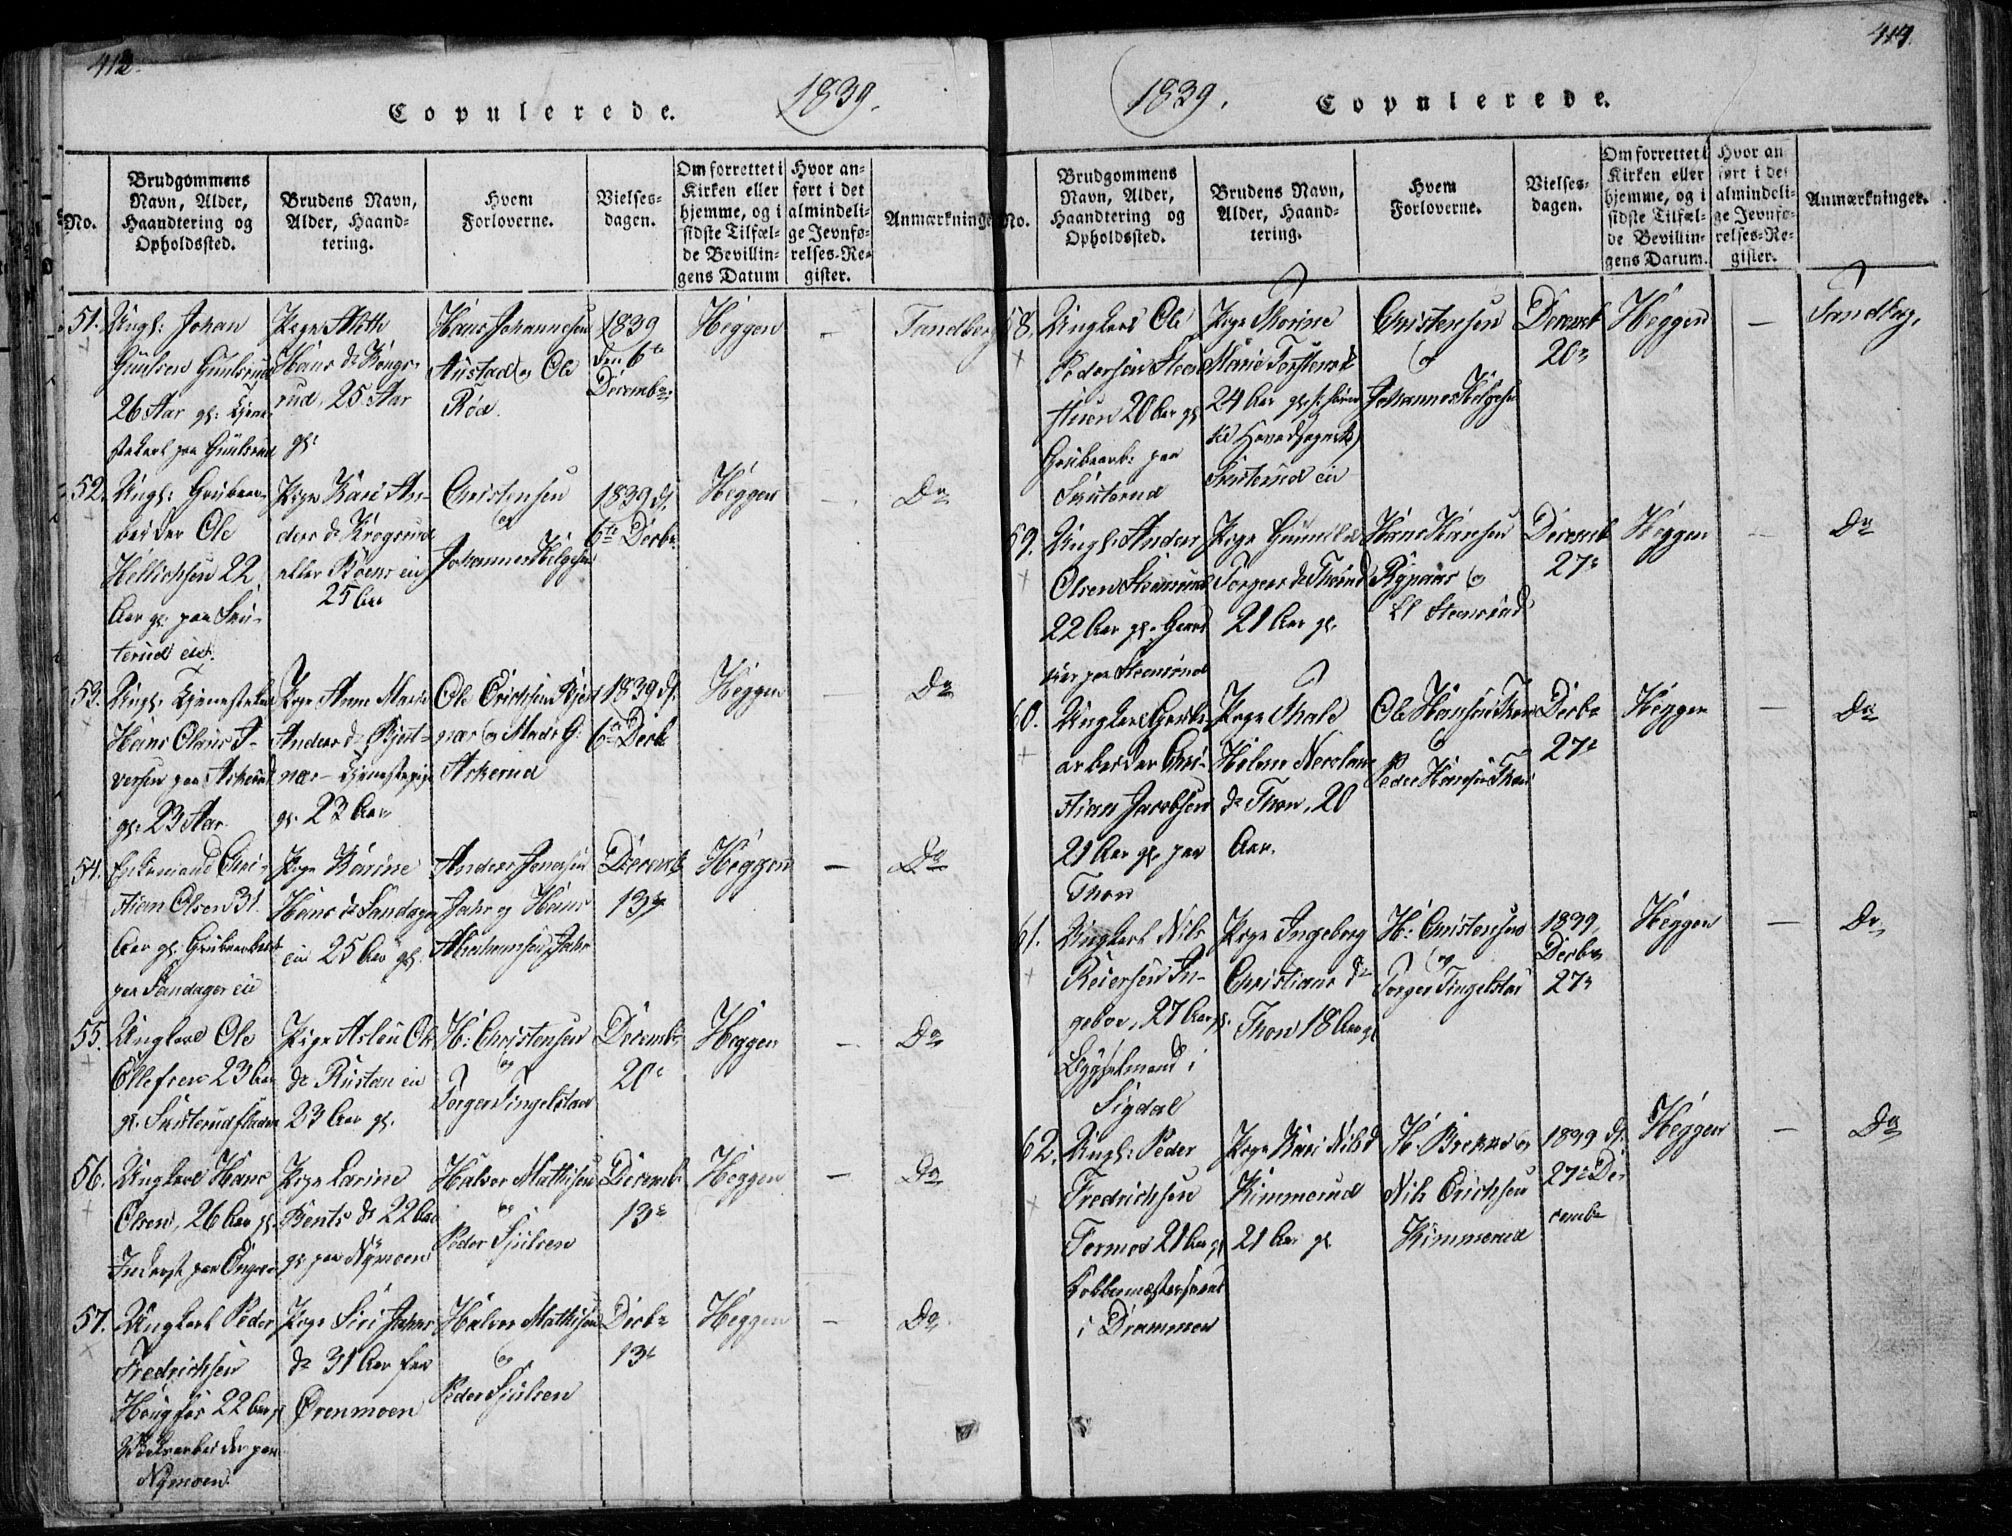 412.
Copulerede.
1839.
No.
Brudgommens
Navn, Alder,
Haandtering og
Opholdssted.
Brudens Navn,
Alder, Haand-
tering.
Hvem
Forloverne.
Vielses-
dagen.
Om forrettet i
Kirken eller
hjemme, og i
sidste Tilfæl-
de Bevillin-
gens Datum
Hvor an-
ført i det
almindeli-
ge Jevnfø-
relses-Re-
gister.
Anmærkninge
51.
Ungk: Johan
Guulsen Guulsrud
26 Aar gl: Tjene
stekarl paa Guulsrud
Pige Aleth
Hans d: Kongs-
rud, 25 Aar
gl:
Hans Johannesen
Austad og Ole
Rød.
1839
den 6te
Decembr
Heggen
—
Tandberg
52.
Ungk: Grubear-
beider Ole
22
Aar gl: paa Sku-
terud eie.
Pige Kari An-
ders d: Krogsrud
eller eie
25 Aar
Christensen
og
Johannes Helgesen
1839 d.
6te Decbr
Heggen
—
Do
53.
Ungk: Tjenestekarl
Hans Olaus I-
versen paa Askerud
gl: 23 Aar
Pige Anne Marie
Anders d:
Tjenestepige
gl. 23 Aar
Ole Erichsen
og Mads G:
Askerud
1839 d.
6te Decb
Heggen
—
Do
54.
Enkemand Chri-
stian Olsen 31
Aar gl: Grubearbeid
paa Sandager eie
Pige Karine
Hans d: Sandager
eie 25 Aar gl.
Anders Jonasen
Jahr og Hans
Abrahamsen Jahr
Decemb
13de
Heggen
—
Do
55.
Ungkarl Ole
Ellefsen 23 Aar
gl. Skuterudfladen
Pige Aslou Ols
d: Rustan eie
23 Aar gl.
H: Christensen
og
Torger Tingelstad
Decembr
20de
Heggen
—
Do
56.
Ungkarl Hans
Olsen, 26 Aar gl.
Inderst paa
Pige Karine
Bents d: 22 Aar
gl: paa Nymoen
Halvor Mathisen
og
Peder Sjulsen
Decembr
13de
Heggen
—
Do
57.
Ungkarl Peder
Fredrichsen
Hougfos 22 Aar gl
paa
Nymoen.
Pige Siri Johns
d: 31 Aar fra
Ørenmoen
Halvor Mathisen
og
Peder Sjulsen
Decbr
13de
Heggen
—
Do
414.
1839.
Copulerede.
No.
Brudgommens
Navn, Alder,
Haandtering og
Opholdssted.
Brudens Navn,
Alder, Haand-
tering.
Hvem
Forloverne.
Vielses-
dagen.
Om forrettet i
Kirken eller
hjemme, og i
sidste Tilfæl-
de Bevillin-
gens Datum.
Hvor an
ført i det
almindeli-
ge Jevnfø-
relses-Re-
gister.
Anmærkninger.
58.
Ungkarl Ole
Pedersen Steen
20 Aar gl
Grubearb: paa
Skuterud
Pige Thorine
Marie Torstens d:
24 Aar gl.
Skuterud eie
Christensen
og
Johannes Helgesen
Decemb
20de
Heggen
—
59.
Ungk: Anders
Olsen Steensrud
22 Aar gl. Gaard
eier paa Steensrud
Pige Gunild
Torgers d: Thrond
21 Aar gl.
Hans Hansen
og
Steensrud
Decemb
27de
Heggen
—
Do
60.
Ungkarl Grube-
arbeider Chri-
stian Jacobsen
21 Aar gl. paa
Thon
Pige Thale
Helene Nicolai
d: Thon, 20
Aar.
Ole Hansen Thon
og
Peder Hansen Thon
Decbr
27de
Heggen
—
Do
61.
Ungkarl Nils
Reiersen In-
gebor, 27 Aar gl.
Bygselmand i
Sigdal
Pige Ingeborg
Christians d:
Thon 18 Aar gl
H: Christensen
og
Torger Tingelstad
1839
Decbr
27de
Heggen
—
Do
62.
Ungk: Peder
Fredrichsen
Formos 21 Aar gl
i Drammen
Pige Kari Nils d
Kimmerud
21 Aar gl.
H: og
Nils Erichsen
Kimmerud
1839 d.
27de De-
cembr
Heggen
—
Do